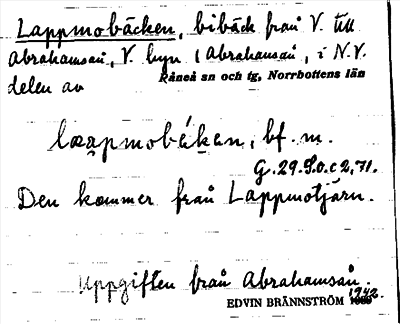 Lappmobäcken, bibäck från V. till
Abrahamsån, V. byn (Abrahamsån, i N.V.
delen av Råneå sn och tg, Norrbottens län
læapmobä́kan, bf. m.
G. 29. S.o.c 2, 71.
Den kommer från Lappmotjärn.
Uppgiften från Abrahamsån.
EDVIN BRÄNNSTRÖM 1942.